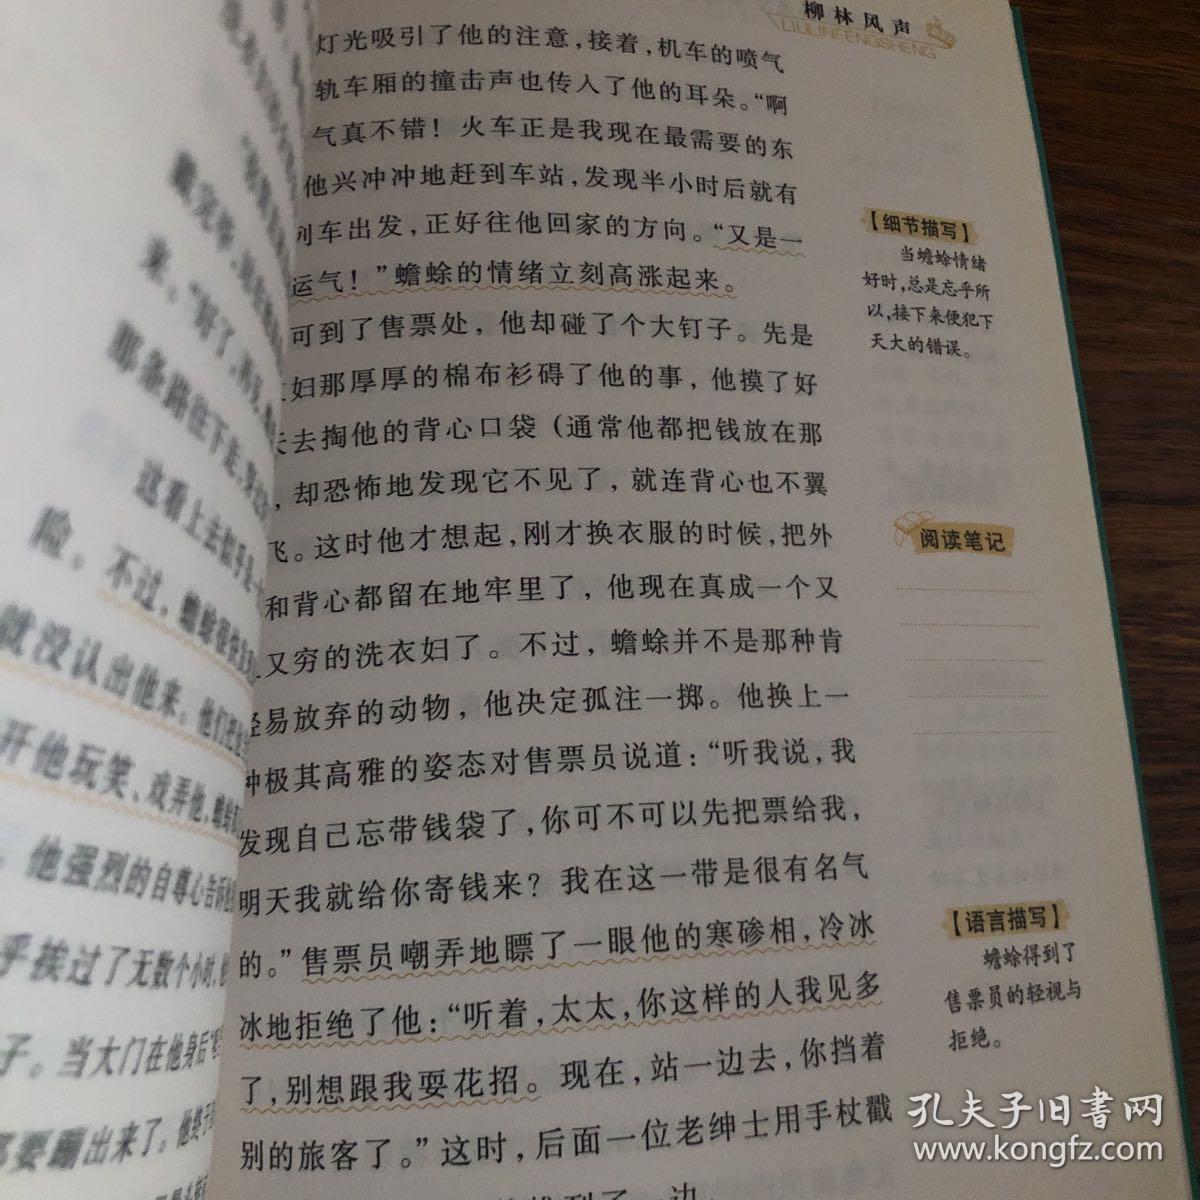 柳林风声
LIULINFENGSHENG
灯光吸引了他的注意,接着,机车的喷气
轨车厢的撞击声也传入了他的耳朵。“啊
气真不错!火车正是我现在最需要的东
他兴冲冲地赶到车站,发现半小时后就有
列车出发,正好往他回家的方向。“又是一
运气!”蟾蜍的情绪立刻高涨起来。
可到了售票处,他却碰了个大钉子。先是
妇那厚厚的棉布衫碍了他的事,他摸了好
去掏他的背心口袋(通常他都把钱放在那
,却恐怖地发现它不见了,就连背心也不翼
飞。这时他才想起,刚才换衣服的时候,把外
和背心都留在地牢里了,他现在真成一个又
又穷的洗衣妇了。不过,蟾蜍并不是那种肯
轻易放弃的动物,他决定孤注一掷。他换上一
种极其高雅的姿态对售票员说道:“听我说,我
发现自己忘带钱袋了,你可不可以先把票给我,
明天我就给你寄钱来?我在这一带是很有名气
的。”售票员嘲弄地瞟了一眼他的寒碜相,冷冰
冰地拒绝了他:“听着,太太,你这样的人我见多
了,别想跟我耍花招。现在,站一边去,你挡着
别的旅客了。”这时,后面一位老绅士用手杖戳
推到了一边。
【细节描写】
当蟾蜍情绪
好时,总是忘乎所
以,接下来便犯下
天大的错误。
阅读笔记
【语言描写】
蟾蜍得到了
售票员的轻视与
拒绝。
戴完毕,
来。“好了,再见,
那条路往下走,穿过
这看上去似乎是一
险。不过,蟾蜍很快
就没认出他来。他们把
开他玩笑、戏弄他,蟾蜍
。他强烈的自尊心告诉他
乎挨过了无数个小时,他
子。当大门在他身后“
都要蹦出来了。他终于
孔夫子旧书网
www.kongfz.com